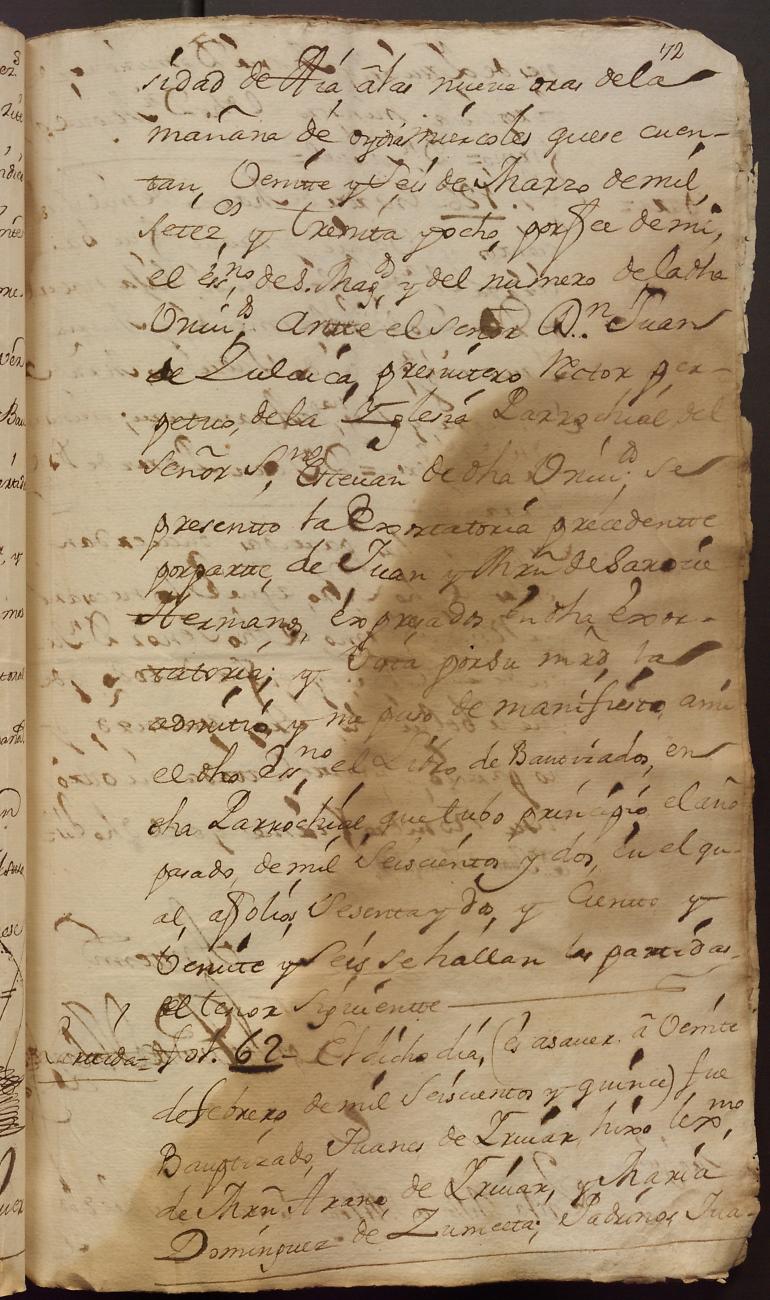 72
sidad de Aia â las nueve oras de la
mañana de oydia miercoles que se cuen-
tan, Veintte y Seis de Marzo de mil,
setez.os y treinta y ocho, por fee de mi,
el ess.no de S. Mag.d y del numero de la dha
Vniu.d Antte el señor D.n Juan
de Zulaica, presvitero Rector per-
petuo, de la Yglesia Parrochial del
señor S.n Estevan de dha Vniu.d se
presentto la Exortatoria precedentte
por partte, de Juan y Mrn de
Hermanos, expresados en dha exor-
tatoria; y Vista por su mrd, la
admitió, y me puso de manifiesto, a mi
el dho Ess.no el Libro de Bautizados, en
dha Parrochial, que tubo principio el año
pasado, de mil Seiscientos y dos, en el qu-
al, a folios Sesenta y dos, y Ciento y
Veintte y Seis se hallan las partidas,
del tenor siguientte
Partida = Fol. 62 - El dicho dia, (es a saver â Veintte
de febrero de mil Seiscientos y quince) fue
Bauptizado, Juanes de Iruar, hixo lex.mo
de Mrn Arano, de Iruar, y Maria
Dominguez de Zumeeta; Padrinos Jua-